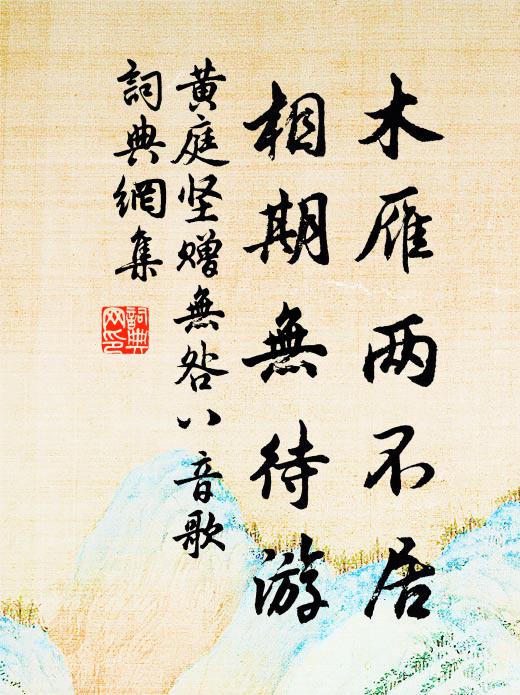 木雁两不居
相期無待游
黄庭坚赠無咎八音歌
詞典網集
詞典网印